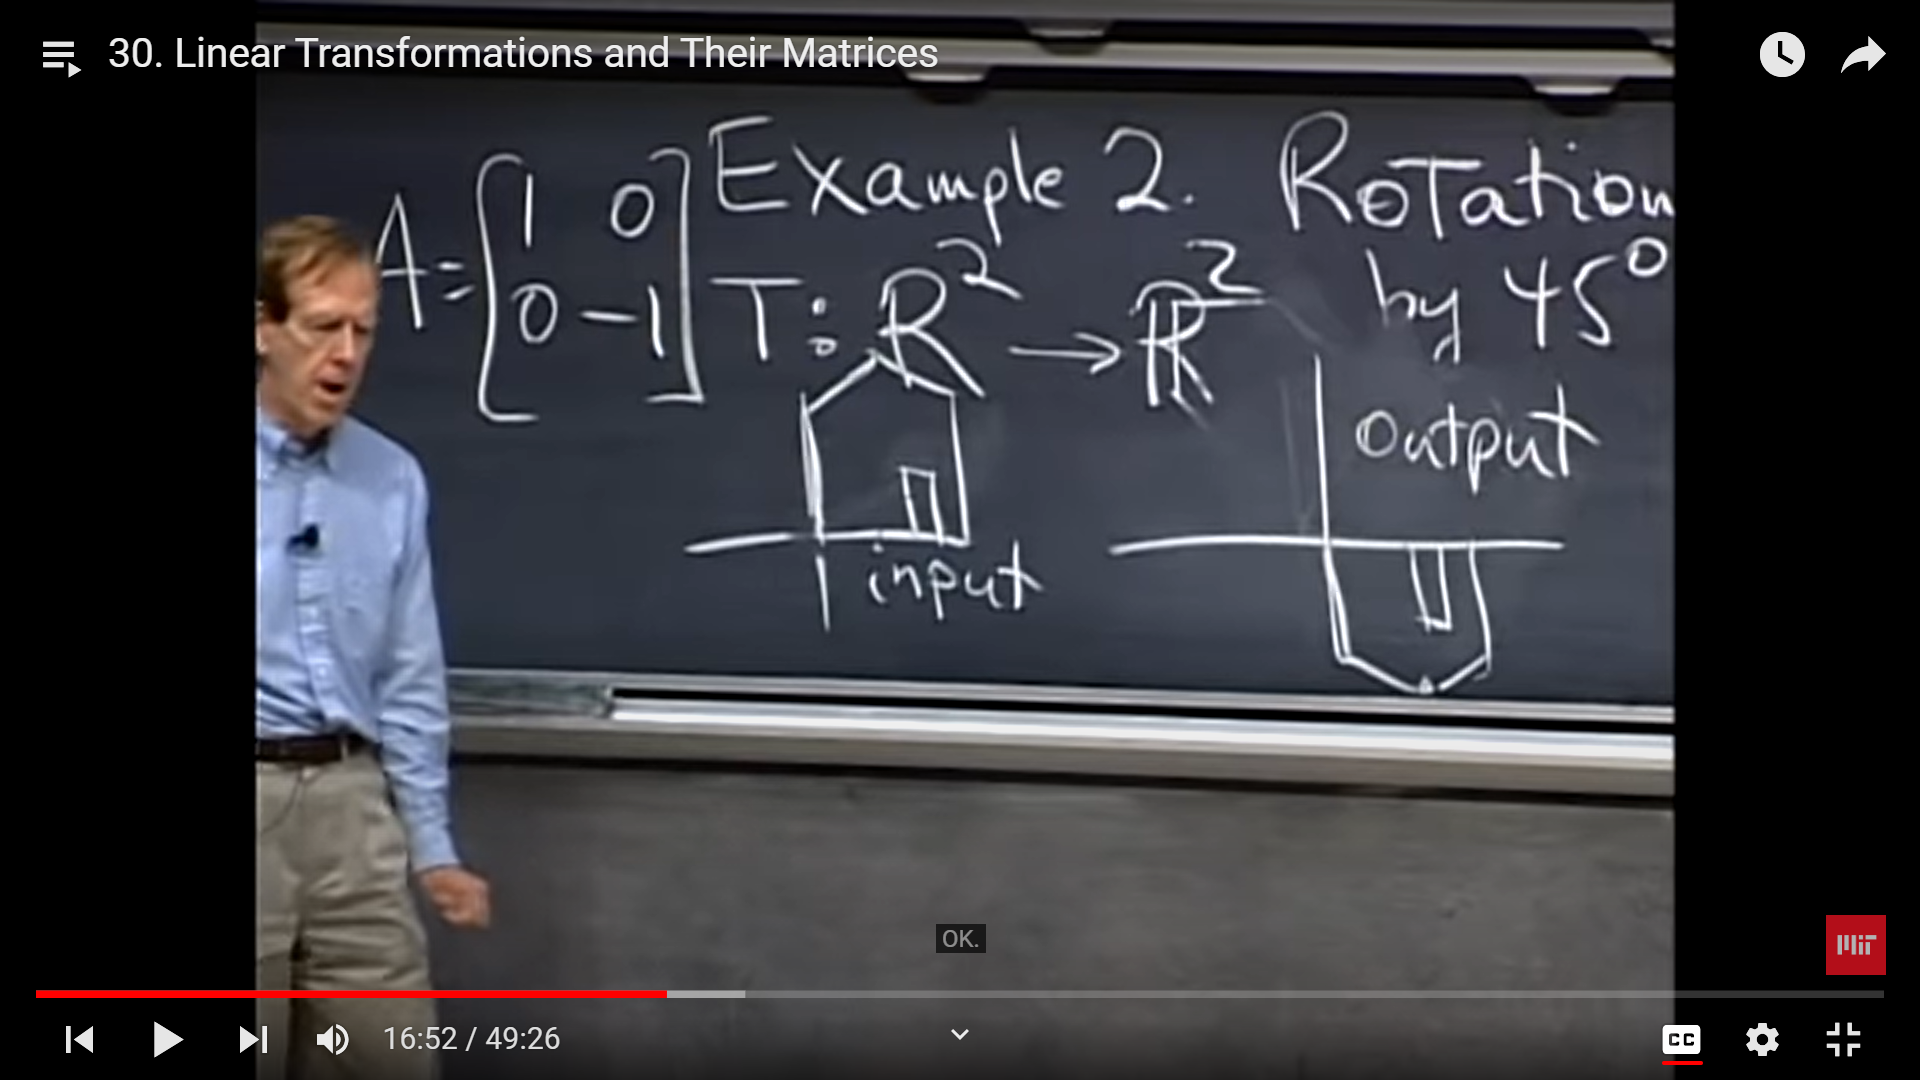 30. Linear Transformations and Their Matrices
A = [1 0
0 -1]
Example 2. Rotation
by 45°
T: R² → R²
input
Output
OK.
MIT
16:52 / 49:26
CC